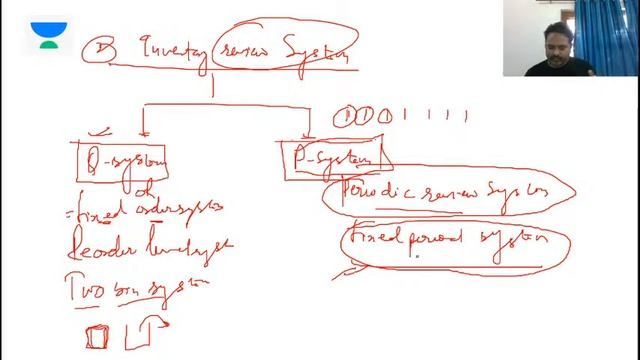 ② Inventory review System
Q-system
P-System
or
= fixed order system
Reorder level syst
Two bin system
Periodic review System
Fixed period system